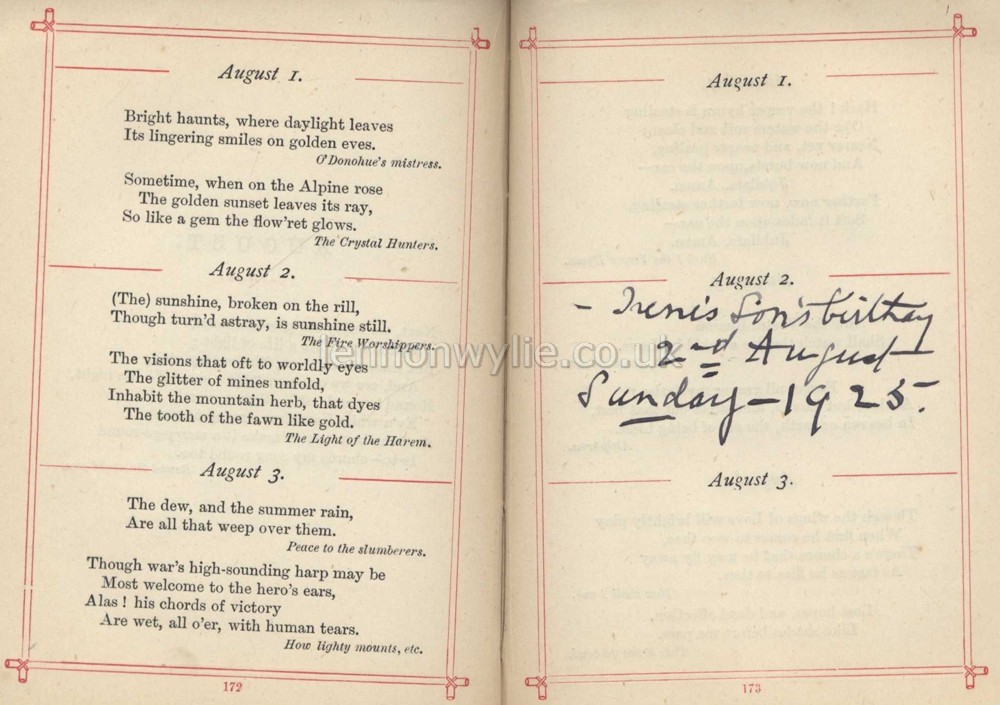 August 1.
Bright haunts, where daylight leaves
Its lingering smiles on golden eves.
O'Donohue's mistress.
Sometime, when on the Alpine rose
The golden sunset leaves its ray,
So like a gem the flow'ret glows.
The Crystal Hunters.
August 2.
(The) sunshine, broken on the rill,
Though turn'd astray, is sunshine still.
The Fire Worshippers.
The visions that oft to worldly eyes
The glitter of mines unfold,
Inhabit the mountain herb, that dyes
The tooth of the fawn like gold.
The Light of the Harem.
August 3.
The dew, and the summer rain,
Are all that weep over them.
Peace to the slumberers.
Though war's high-sounding harp may be
Most welcome to the hero's ears,
Alas ! his chords of victory
Are wet, all o'er, with human tears.
How lighty mounts, etc.
172
August 1.
August 2.
- Irene's Son's birthay
2nd August
Sunday - 1925.
August 3.
173
lennonwylie.co.uk